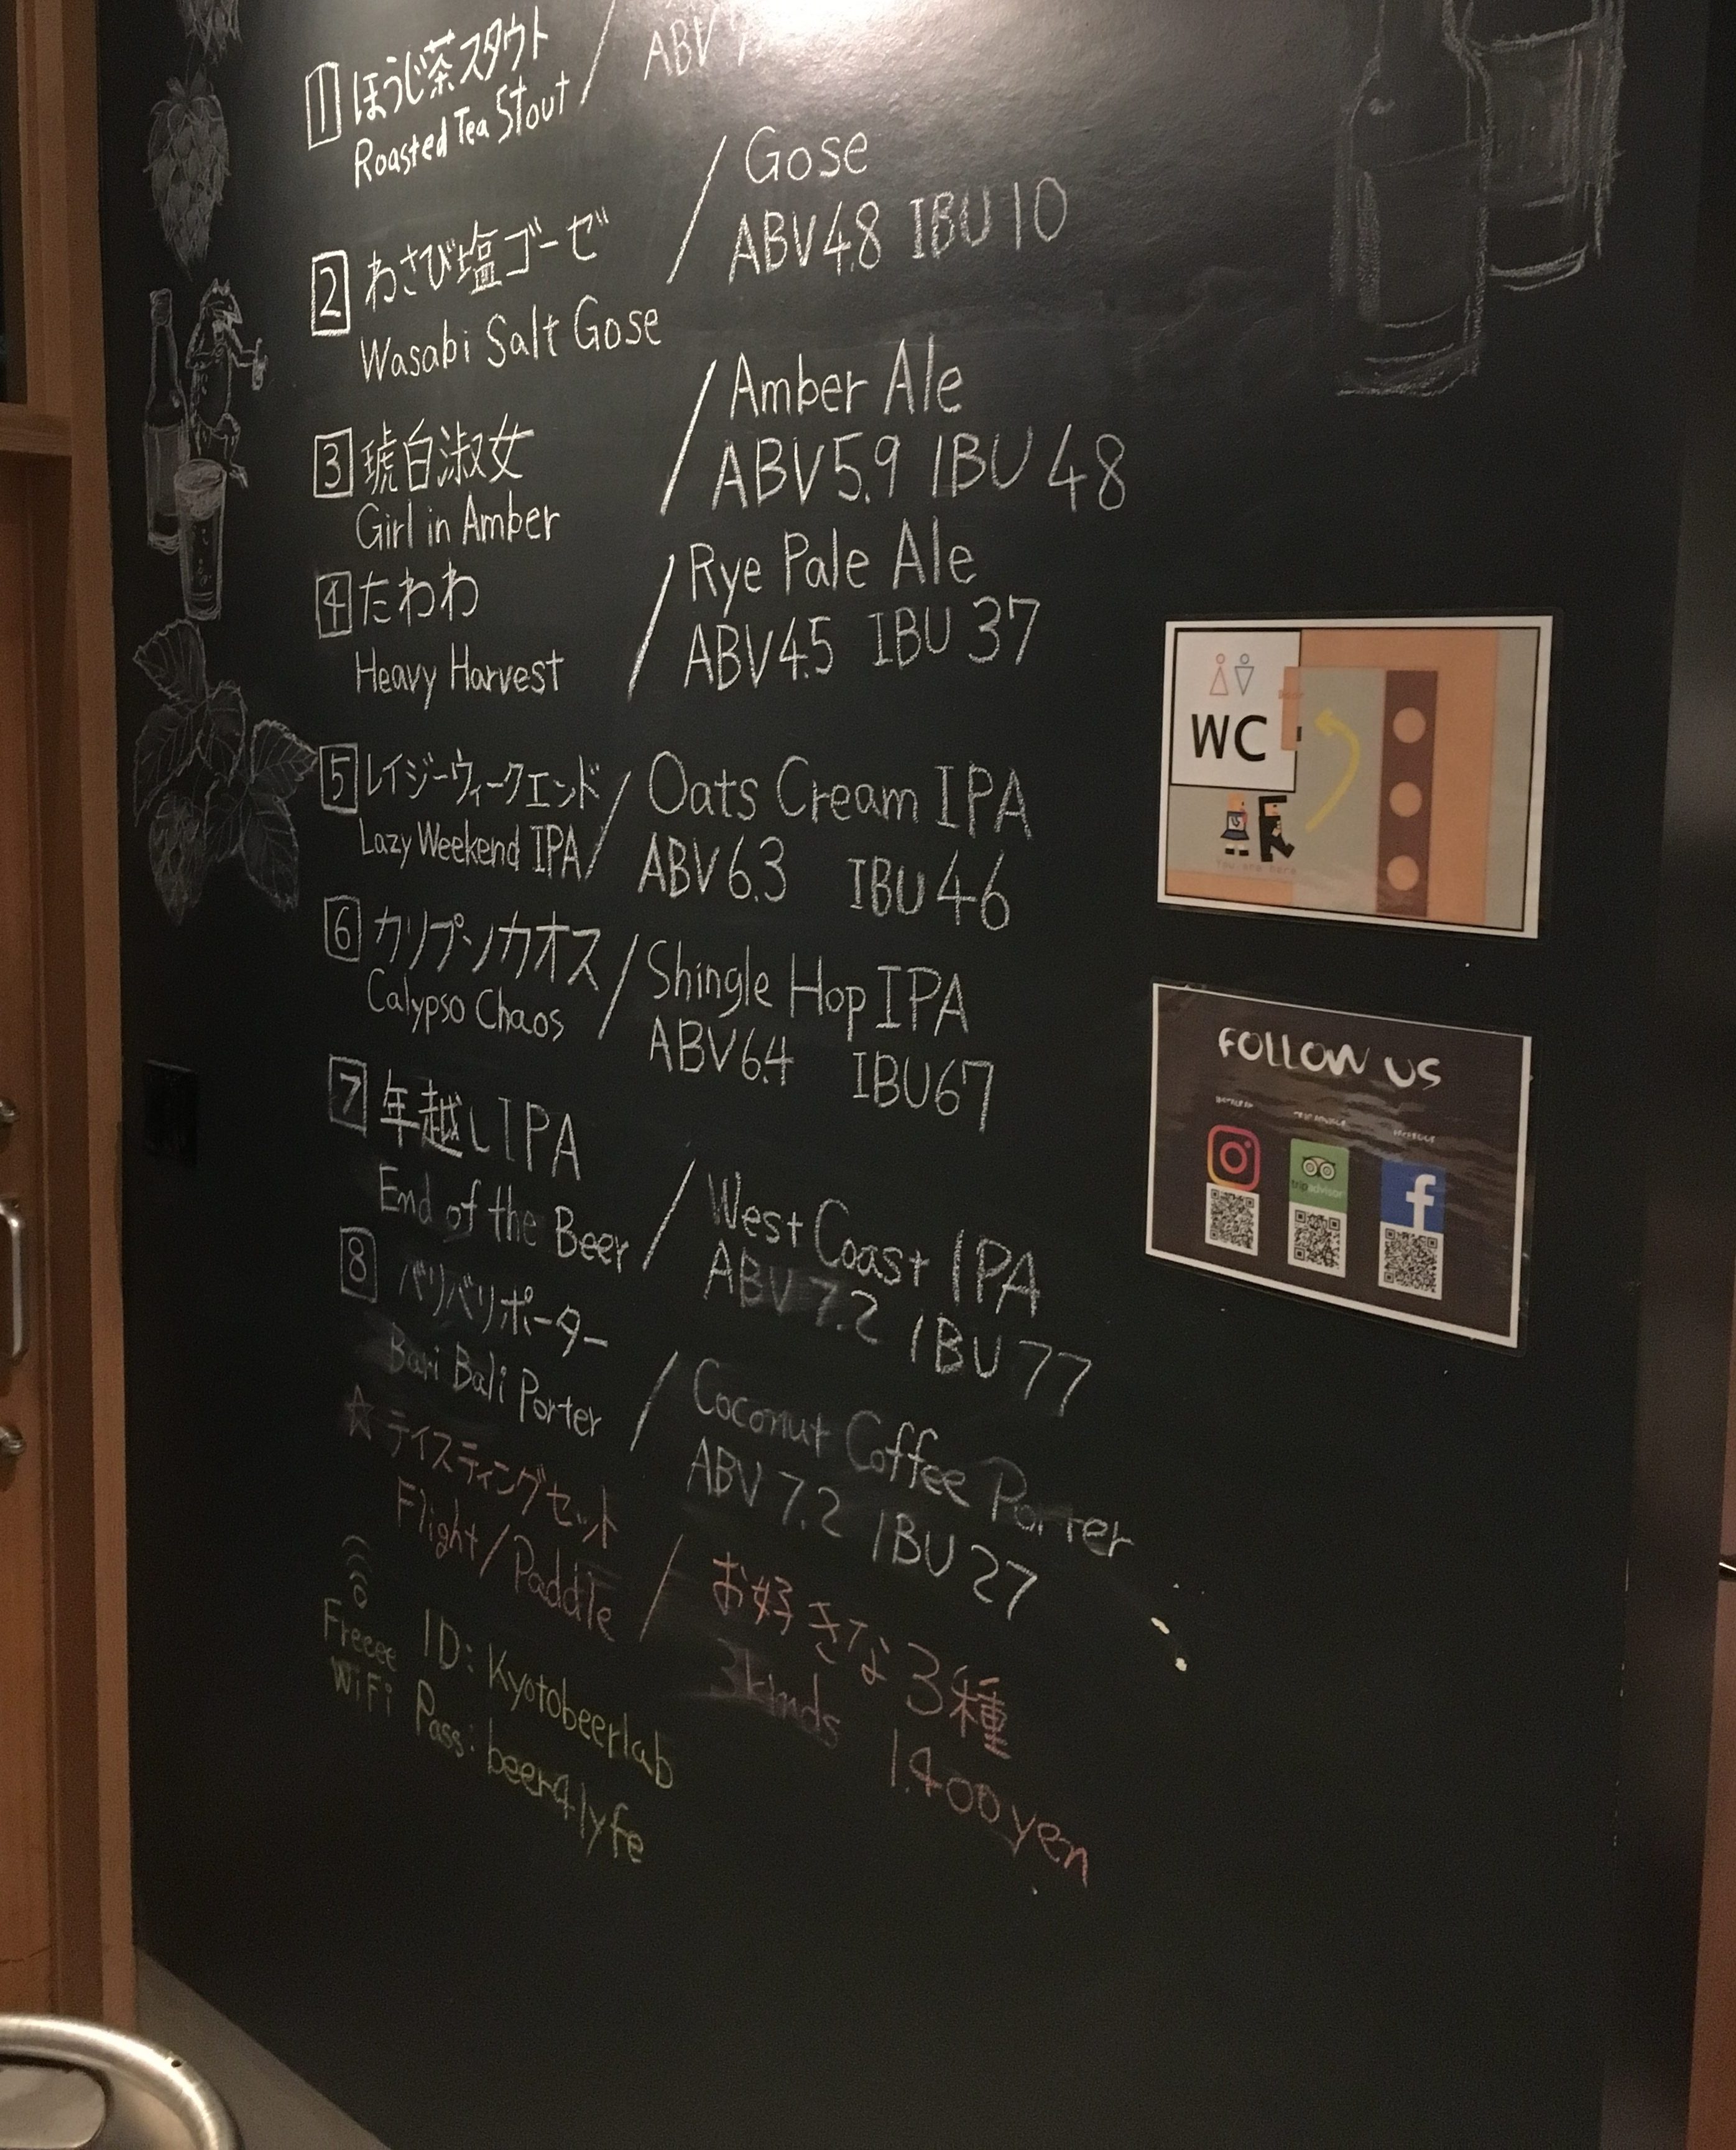 1 ほうじ茶スタウト /
Roasted Tea Stout
ABV
2 わさび塩ゴーゼ / Gose
Wasabi Salt Gose
ABV4.8 IBU10
3 琥白淑女 / Amber Ale
Girl in Amber
ABV5.9 IBU 48
4 たわわ / Rye Pale Ale
Heavy Harvest
ABV4.5 IBU 37
5 レイジーウィークエンド / Oats Cream IPA
Lazy Weekend IPA
ABV6.3 IBU46
6 カリプソカオス / Shingle Hop IPA
Calypso Chaos
ABV6.4 IBU67
7 年越しIPA
End of the Beer / West Coast IPA
ABV 7.2 IBU 77
8 バリバリポーター
Bari Bali Porter / Coconut Coffee Porter
ABV 7.2 IBU 27
☆ テイスティングセット
Flight/Paddle / お好きな3種
3kinds 1.400yen
Freeee WiFi
ID: Kyotobeerlab
Pass: beer4lyfe
WC
You are here
FOLLOW US
tripadvisor